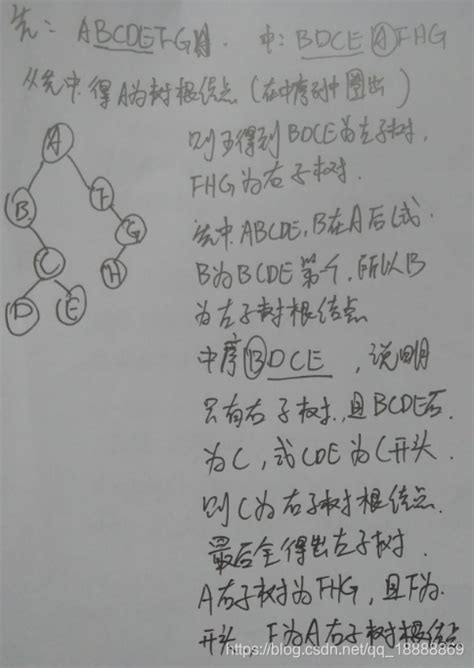 先: ABCDEFGH. 中: BDCEAFHG
从先中得A为树根结点(在中序列中圈出)
则可得到BDCE为左子树,
FHG为右子树.
先中ABCDE,B在A后(或
B为BCDE第一个,所以B
为左子树根结点
中序BDCE,说明
只有右子树,且BCDE后
为C,或CDE为C开头.
则C为右子树根结点.
最后全得出左子树.
A右子树为FHG,且F为
开头,F为A右子树根结点
A
B
F
C
G
D
E
H
https://blog.csdn.net/qq_18888869